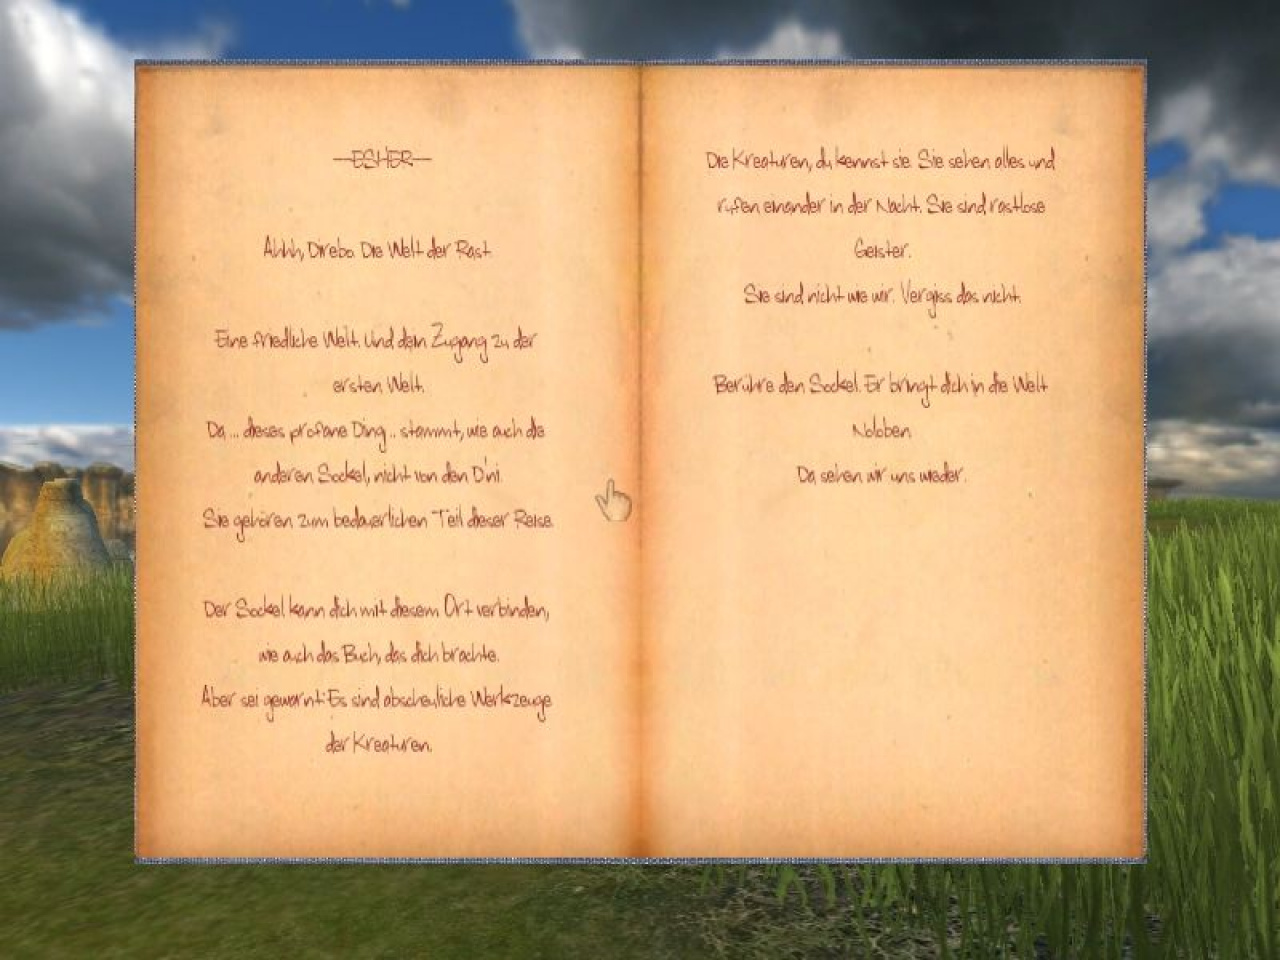 ESHER
Ahhh, Direbo. Die Welt der Rast.
Eine friedliche Welt. Und dein Zugang zu der
ersten Welt.
Da ... dieses profane Ding ... stammt, wie auch die
anderen Sockel, nicht von den D'ni.
Sie gehören zum bedauerlichen Teil dieser Reise.
Der Sockel kann dich mit diesem Ort verbinden,
wie auch das Buch, das dich brachte.
Aber sei gewarnt: Es sind abscheuliche Werkzeuge
der Kreaturen.
Die Kreaturen, du kennst sie. Sie sehen alles und
rufen einander in der Nacht. Sie sind rastlose
Geister.
Sie sind nicht wie wir. Vergiss das nicht.
Berühre den Sockel. Er bringt dich in die Welt
Noloben.
Da sehen wir uns wieder.